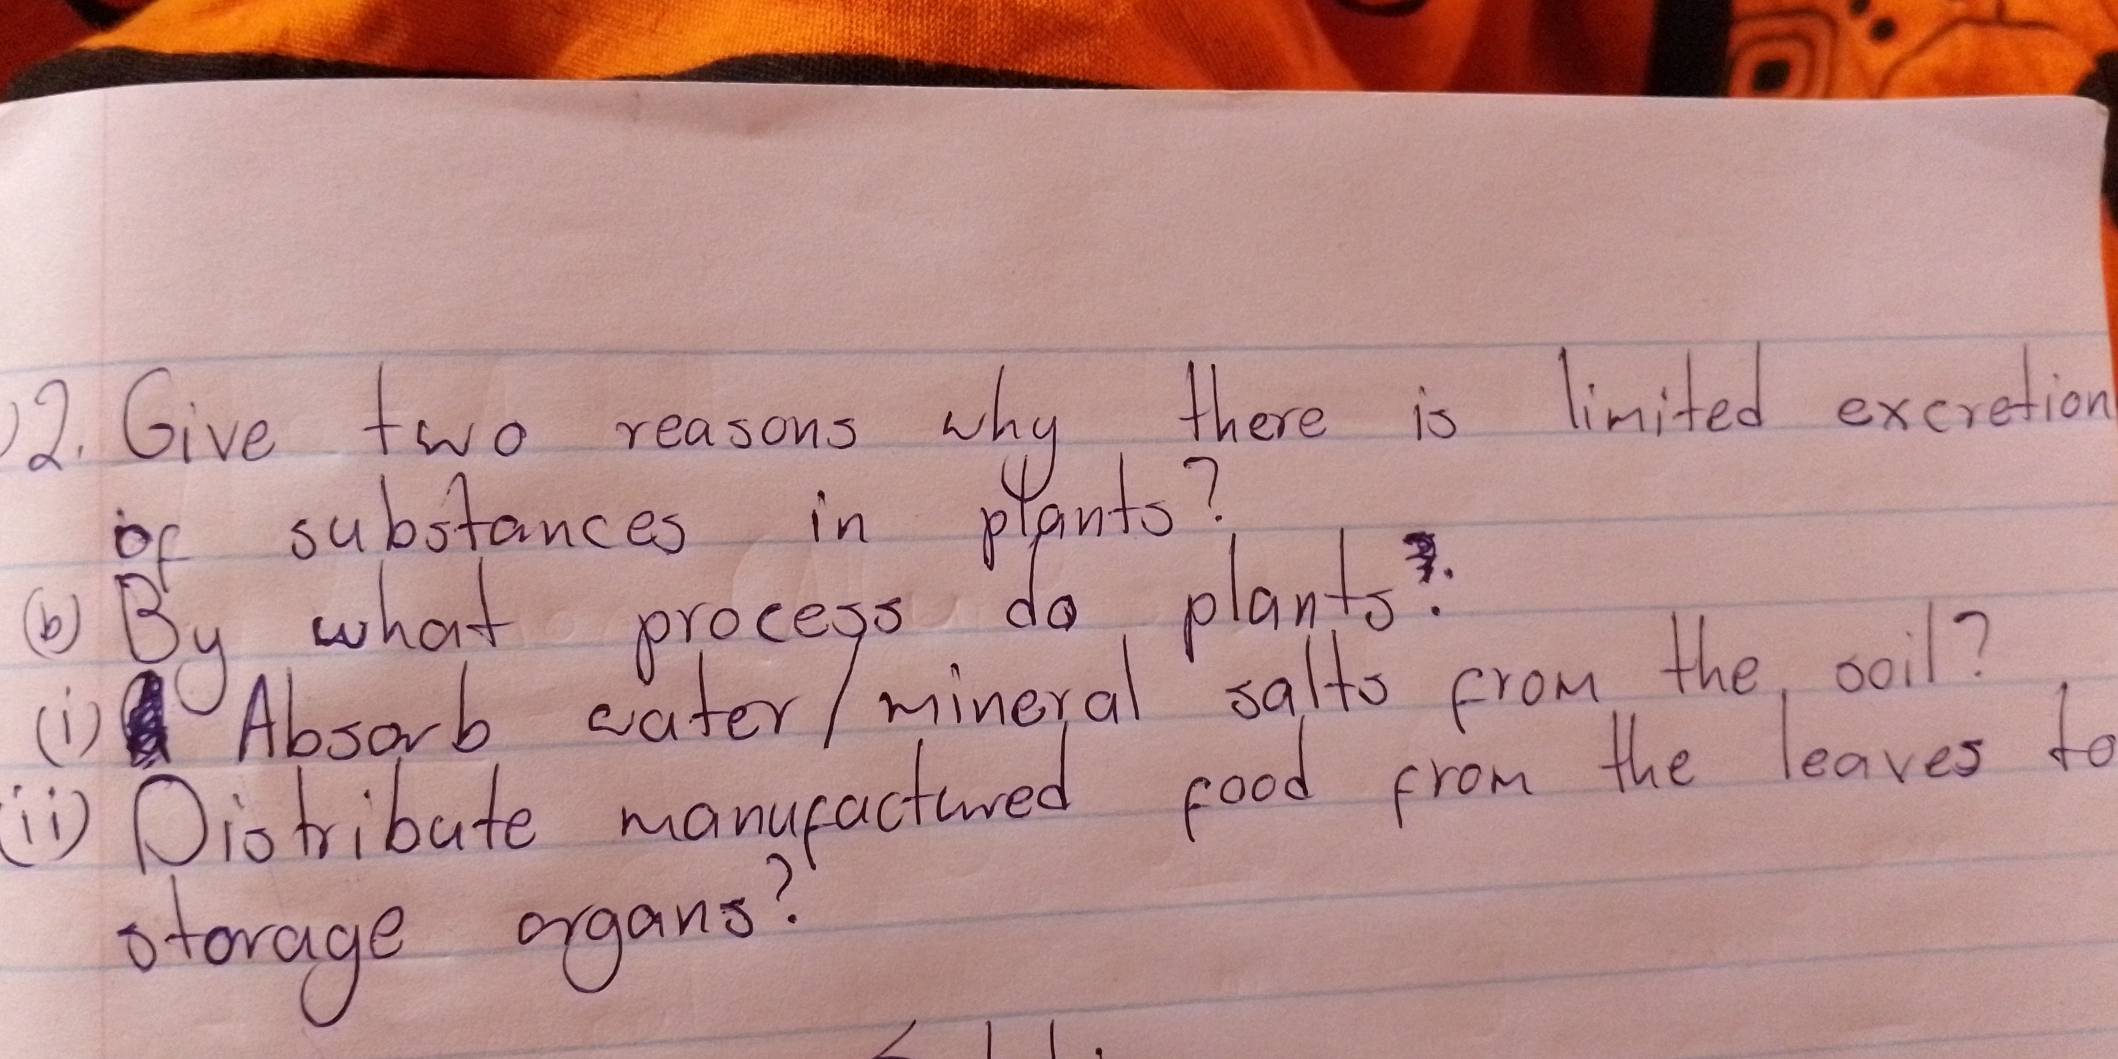 12. Give two reasons why there is limited excretion
of substances in plants?
(b) By what process do plants?.
(i) Absorb water/mineral salts from the soil?
(ii) Distribute manufactured food from the leaves to
storage organs?